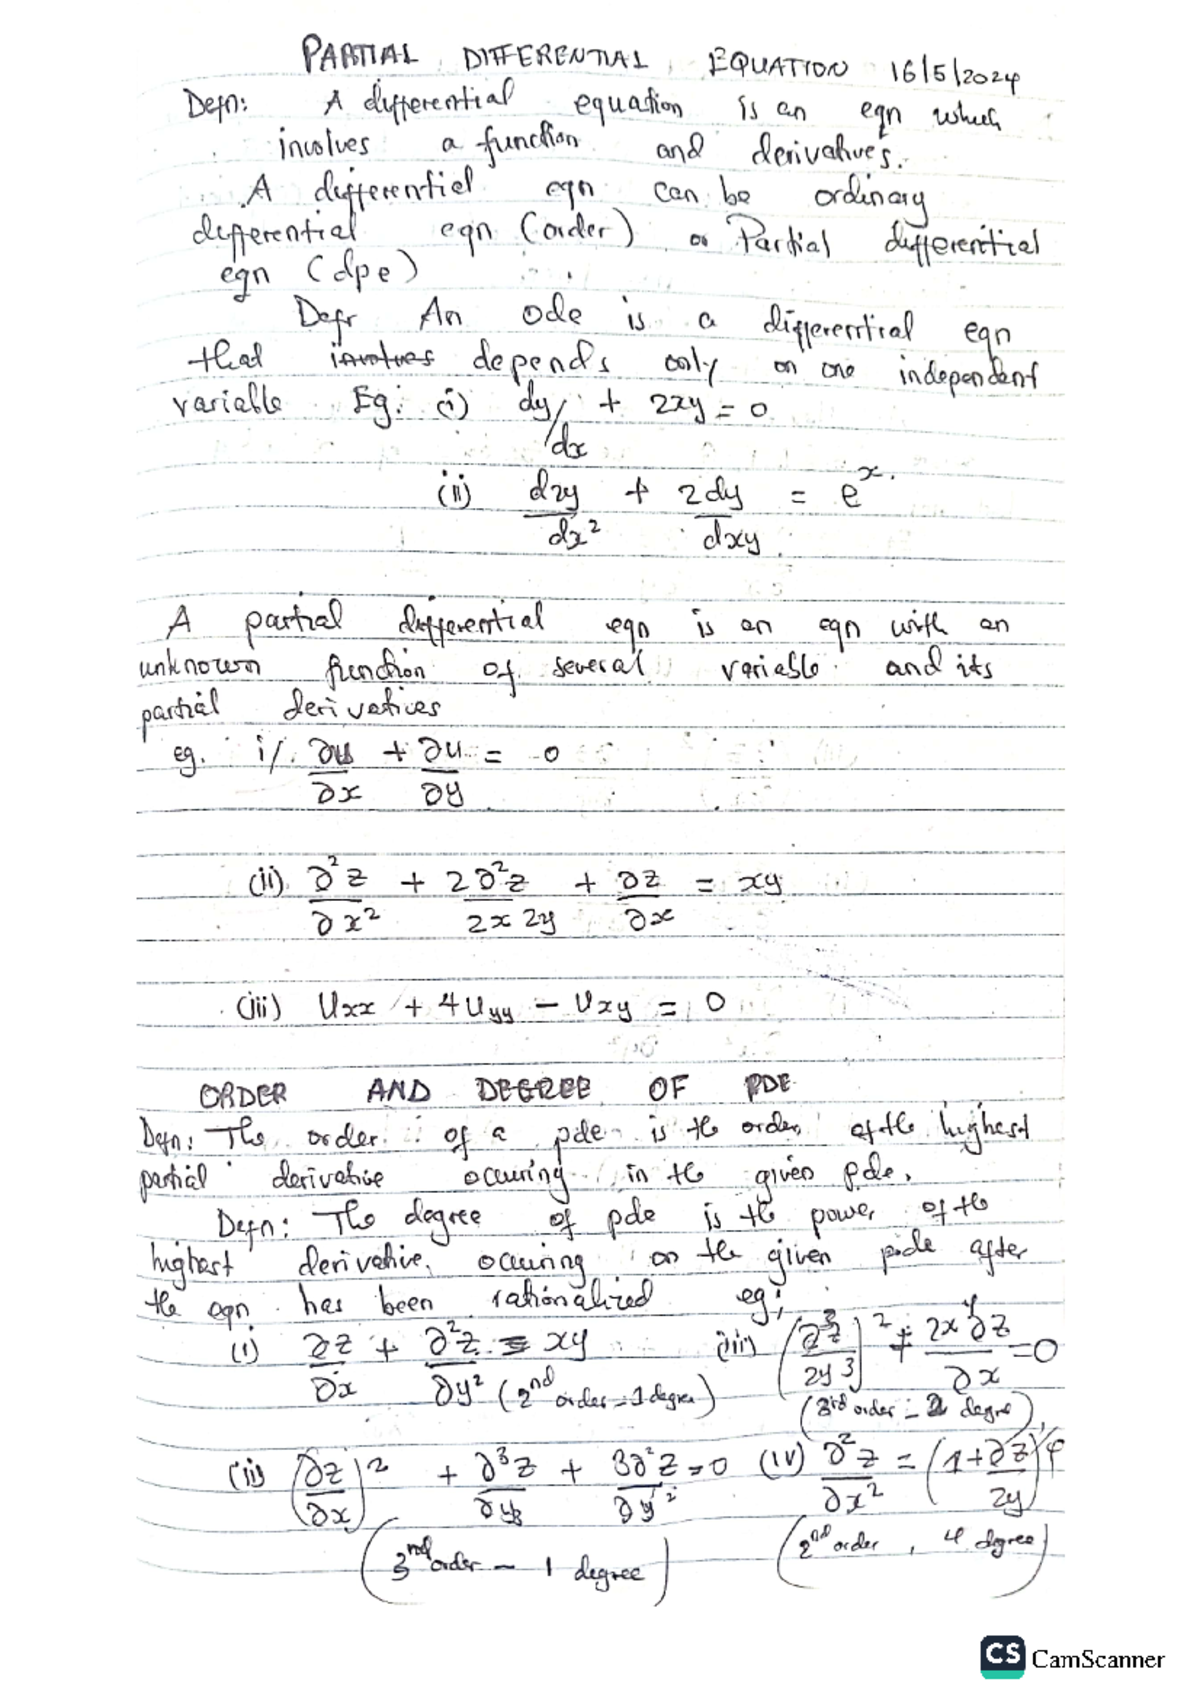 PARTIAL DIFFERENTIAL EQUATION 16/5/2024
Defn: A differential equation is an eqn which
involves a function and derivatives.
A differentiel eqn can be ordinary
differential eqn (order) or Partial differential
eqn (dpe)
Defn An ode is a differential eqn
that involves depends only on one independent
variable Eg: (i) dy/dx + 2xy = 0
(ii) d2y/dx² + 2dy/dxy = e^x.
A partial differential eqn is an eqn with an
unknown function of several variable and its
partial derivatives
eg. i/. ∂u/∂x + ∂u/∂y = 0
(ii) ∂²z/∂x² + 2∂²z/2x 2y + ∂z/∂x = xy
(iii) Uxx + 4Uyy - Uxy = 0
ORDER AND DEGREE OF PDE
Defn: The order of a pde is the order of the highest
partial derivative occuring in the given pde.
Defn: The degree of pde is the power of the
highest derivative, occuring on the given pde after
the eqn has been rationalized eg;
(i) ∂z/∂x + ∂²z/∂y² = xy (2nd order = 1 degree)
(iii) (∂³z/2y³)² + 2x ∂z/∂x = 0
(3rd order - 2 degree)
(ii) (∂z/∂x)² + ∂³z/∂y3 + 3∂²z/∂y² = 0
(3nd order - 1 degree)
(iv) ∂²z/∂x² = (1+∂z/2y)^4
(2nd order, 4 degree)
CS CamScanner